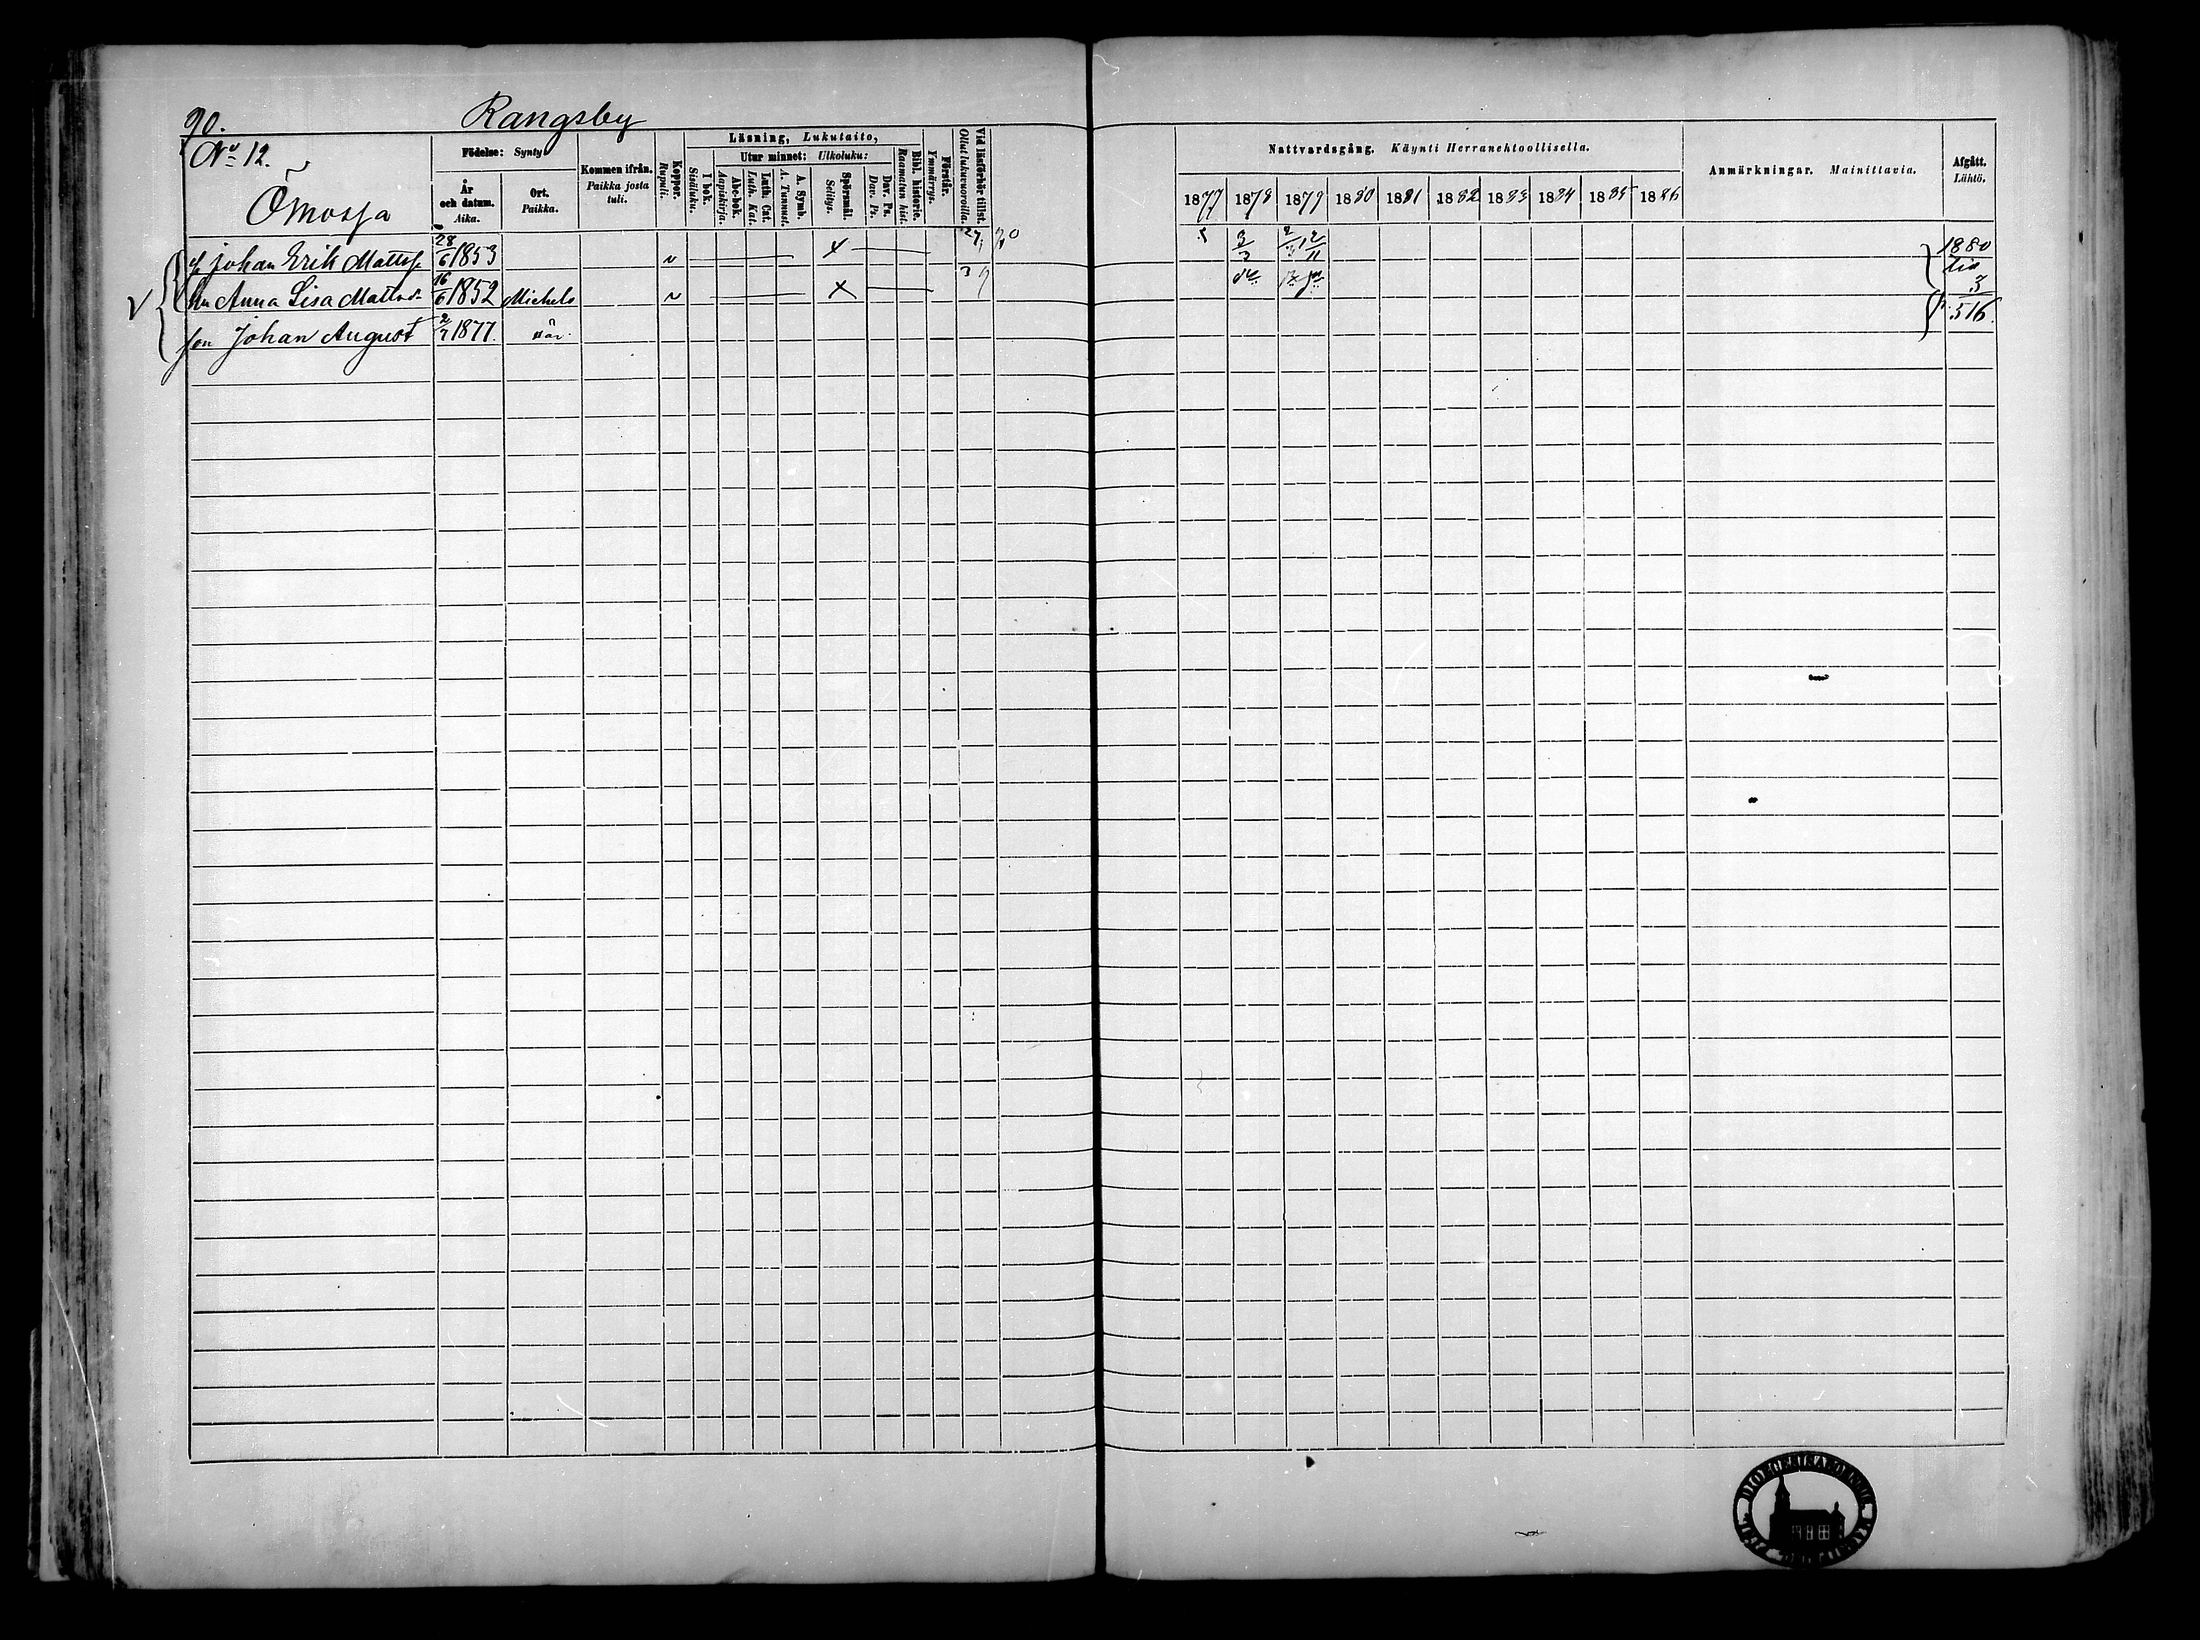 90. Rangsby
No 12.
Ömossa
Födelse: Synty
År och datum. Aika.
Ort. Paikka.
Kommen ifrån. Paikka josta tuli.
Koppor. Rupuli.
Läsning, Lukutaito,
I bok. Sisäluku.
Utur minnet: Ulkoluku:
Abc-bok. Aapiskirja.
Luth. Cat. Luth. Kat.
A. Symb. A. Tunnust.
Spörsmål. Selitys.
Dav. Ps. Dav. Ps.
Bibl. historie. Raamatun hist.
Förstår. Ymmärrys.
Vid läsförhör tillst. Ollut lukuvuoroilla.
Nattvardsgång. Käynti Herranehtoollisella.
1877 1878 1879 1880 1881 1882 1883 1884 1885 1886
Anmärkningar. Mainittavia.
Afgått. Lähtö.
Johan Erik Matts 28/6 1853 3/3 2/11 1880
Anna Lisa Mattsd 16/6 1852 Michels 3
son Johan August 2/7 1877. här p. 516.